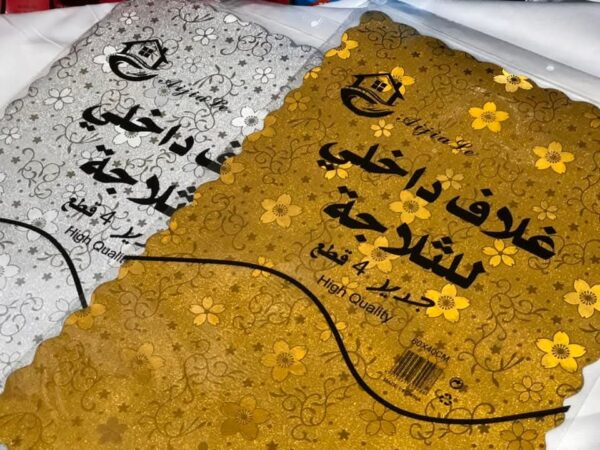 AijiaLe
غلاف داخلي
للثلاجة
جديد 4 قطع
High Quality
AijiaLe
غلاف داخلي
للثلاجة
جديد 4 قطع
High Quality
60X40CM